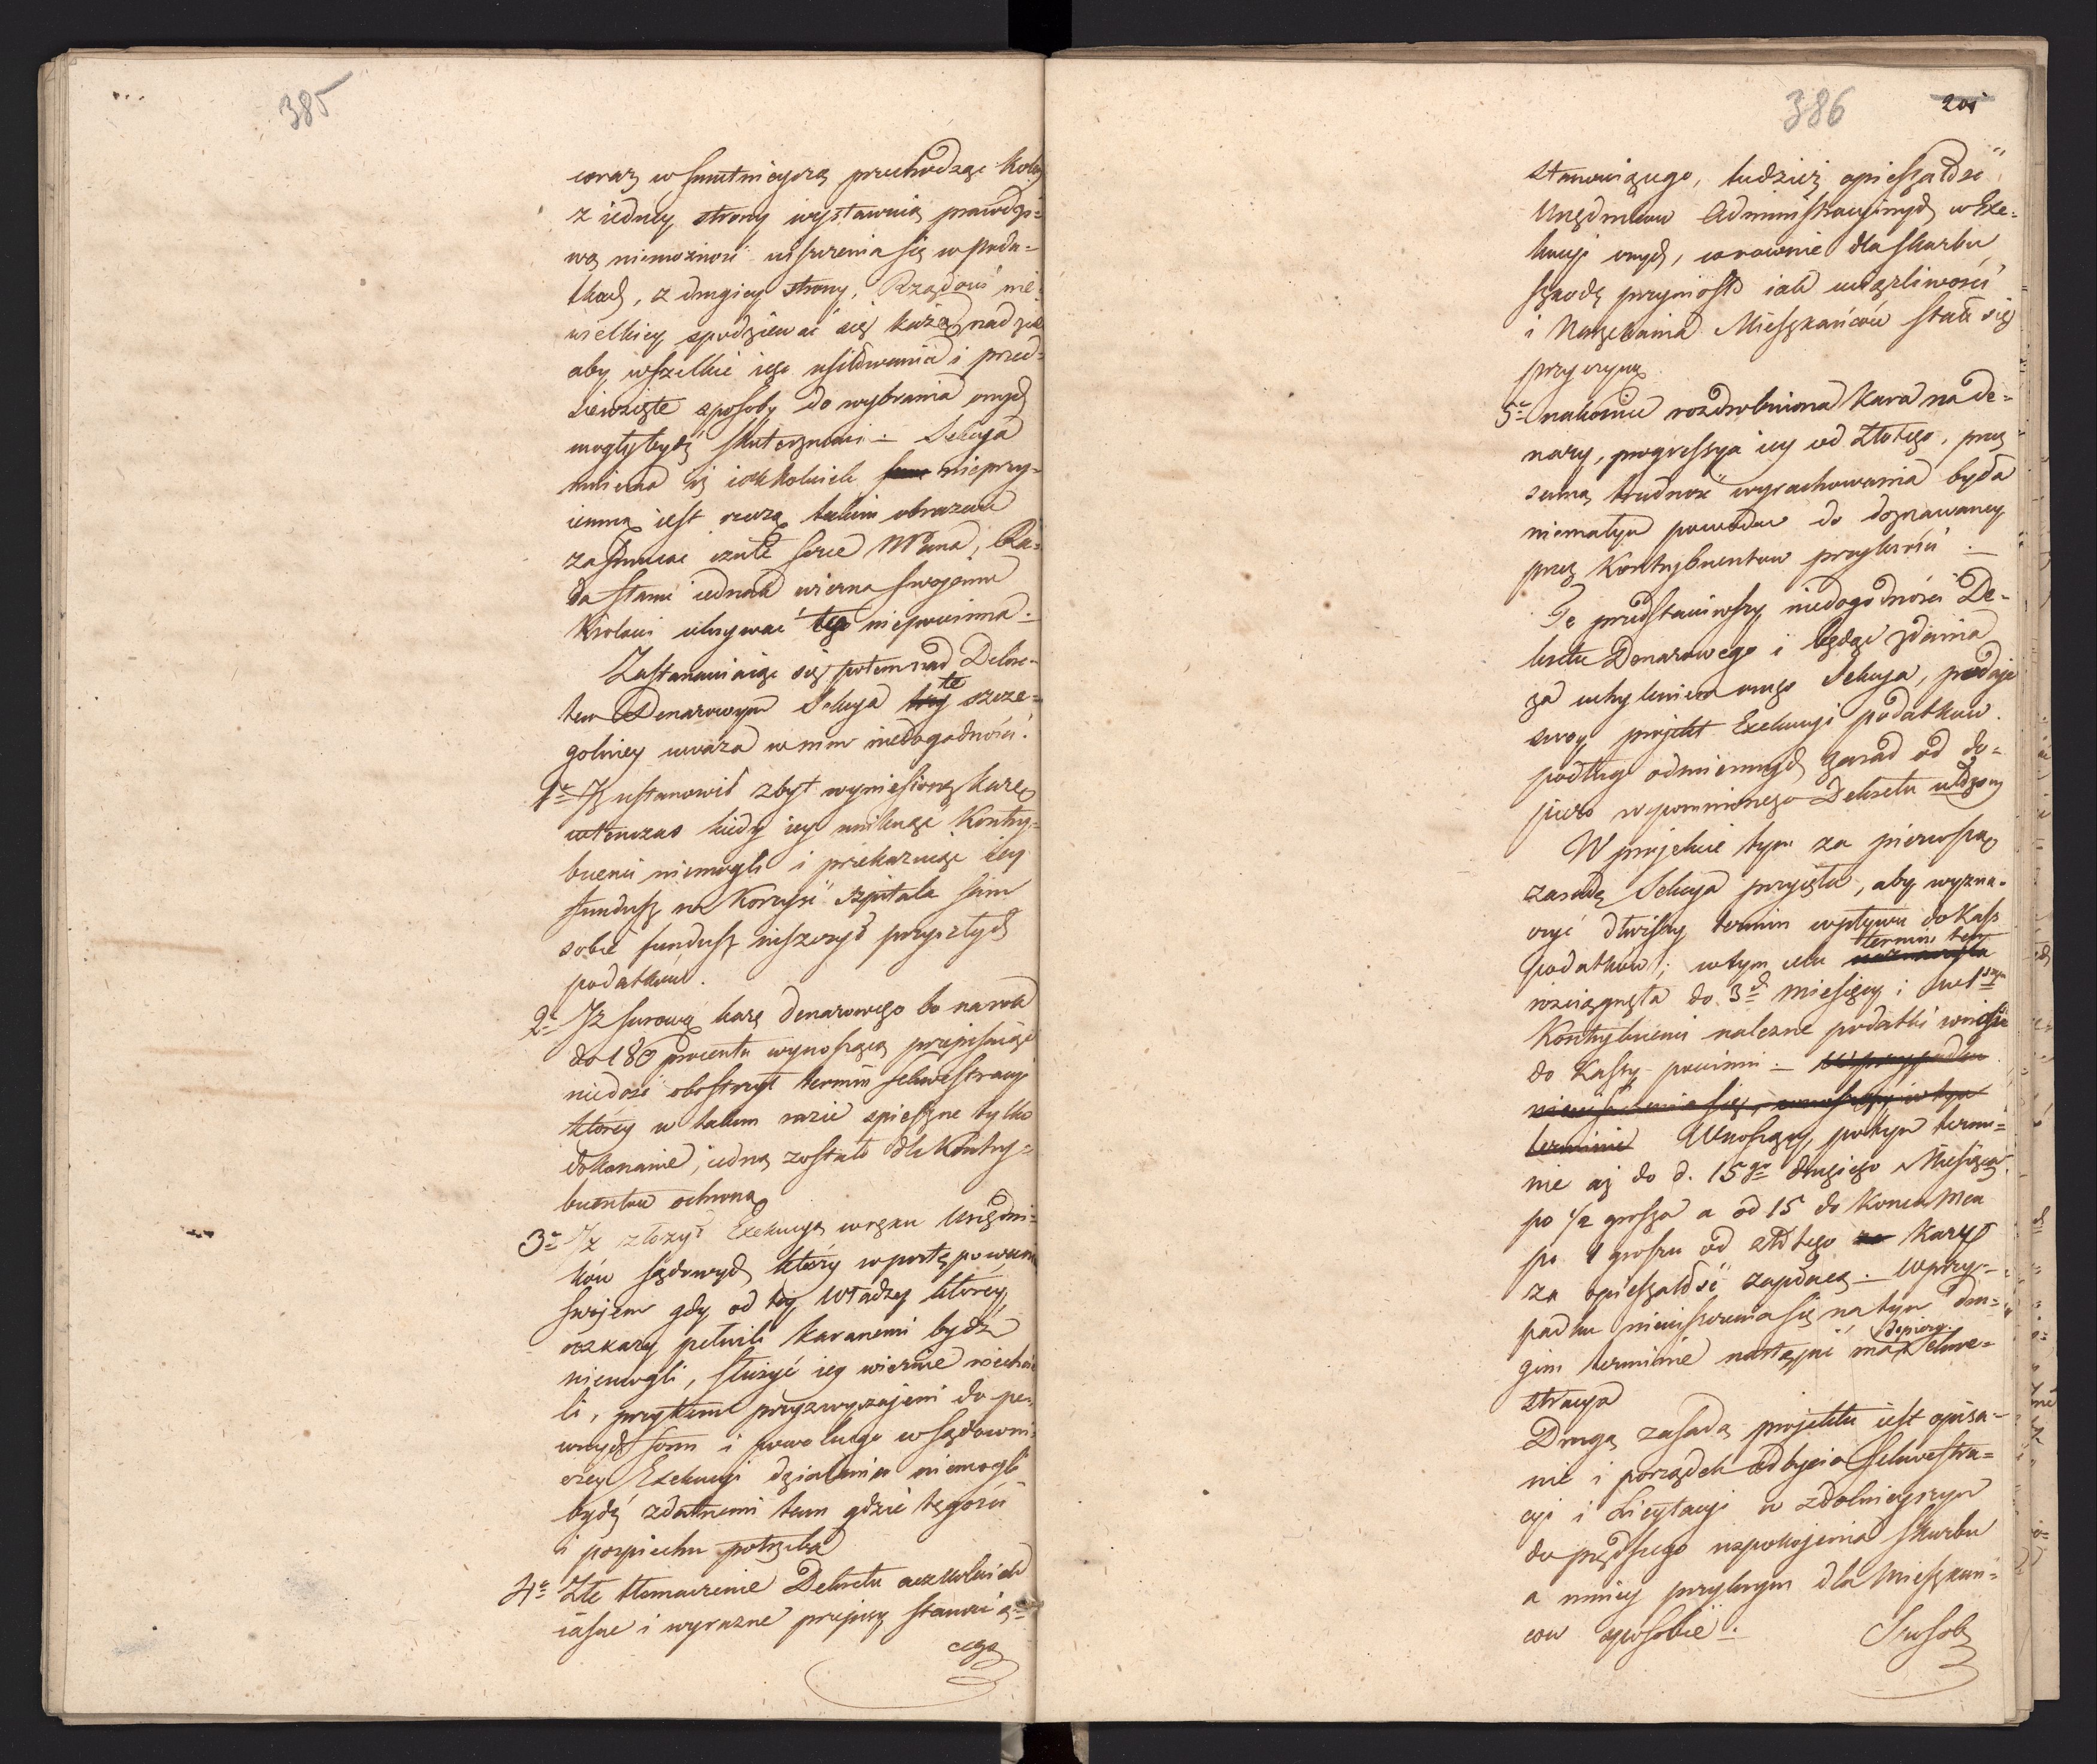 385
coraz w smutnieyszą przechodząc koley
z iedney strony wystawnią prawdzi=
wą niemożność uiszczenia się w poda=
tkach, z drugiey strony, Rządowi nie=
wielkiey spodziewać się każą nadziei
aby wszelkie iego usiłowania i przed=
siewzięte sposoby do wybrania onych
mogły bydź skutecznemi :- Sekcya
mniema iż iakkolwiek nieprzy=
iemną iest rzeczą takim obrazem
zasmucać czułe serce NPana, Ra=
da Stanu iednak wierna swojemu
Królowi ukrywać tego niepowinna :-
Zastanawiaiąc się potem nad Dekre=
tem Denarowym Sekcya te szcze=
golniey uważa w nim niedogodności :
1e Iż ustanowił zbyt wyniesioną karę
wtenczas kiedy iey uniknąć Kontry=
buenci niemogli i przekazuiąc iey
fundusz na Korzyść szpitala sam
sobie fundusz niszczył przyszłych
podatków.
2e Iż surową karę denarowego bo nawet
do 180 procentu wynoszącą przepisuiąc
niedość obostrzył termin sekwestracyi
którey w takim razie spieszne tylko
dokonanie, iedną zostało dla Kontry=
buentow ochroną
3e Iż złożył Exekucyą w ręku Urzędni=
ków sądowych którzy w postępowaniu
swojem gdy od tey Władzy którey
rozkazy pełnili karanemi bydź
niemogli, służyć iey wiernie niechcie
li, przytem przyzwyczajeni do pe=
wnych form i powolnego w sądowni=
czey Exekucyi działania niemogli
bydź zdatnemi tam gdzie tęgości
i pospiechu potrzeba
4e Złe tłomaczenie Dekretu aczkolwiek
iasne i wyrazne przepisy stanowią=
cego
386
201
stanowiącego, tudzież opieszałość
Urzędników Administracyinych w Exe=
kucyi onych, zarowno dla skarbu
szkodę przyniosło iak uciążliwości
i Narzekania Mieszkańców stało się
przyczyną
5e nakoniec rozdrobniona Kara na de=
nary, progressya iey od Złotego, przez
samą trudność wyrachowania była
niemałym powodem do doznawaney
przez Kontrybuentow przykrości :-
Te przedstawiwszy niedogodności De=
kretu Denarowego i będąc zdania
za uchyleniem onego Sekcya, podaje
swoy projekt Exekucyi podatkow
podług odmiennych zasad od do=
piero wspomnionego Dekretu ułożony
W projekcie tym za pierwszą
zasadę Sekcya przyięła, aby wyzna=
czyć dłuższy termin wpływu do Kass
podatkow ; w tym celu termin ten
rościągnęła do 3ch miesięcy i w 1szym
Kontrybuenci należne podatki wnieść
do Kassy powinni :-
Wnoszący, po tym termi=
nie aż do d. 15go drugiego Miesiąca
po 1/2 grosza a od 15 do Końca Mca
po 1 groszu od złotego kary
za opieszałość zapłacą :- W przy=
padku nieuiszczenia się na tym dru=
gim terminie nastąpić ma dopiero Sekwe=
stracya
Drugą zasadą projektu iest opisa=
nie i porządek odbycia Sekwestra=
cyi i Licytacyi w zdolnieyszym
do prędszego uspokojenia Skarbu
a mniey przykrym dla Mieszkań=
cow sposobie :-
Sposob